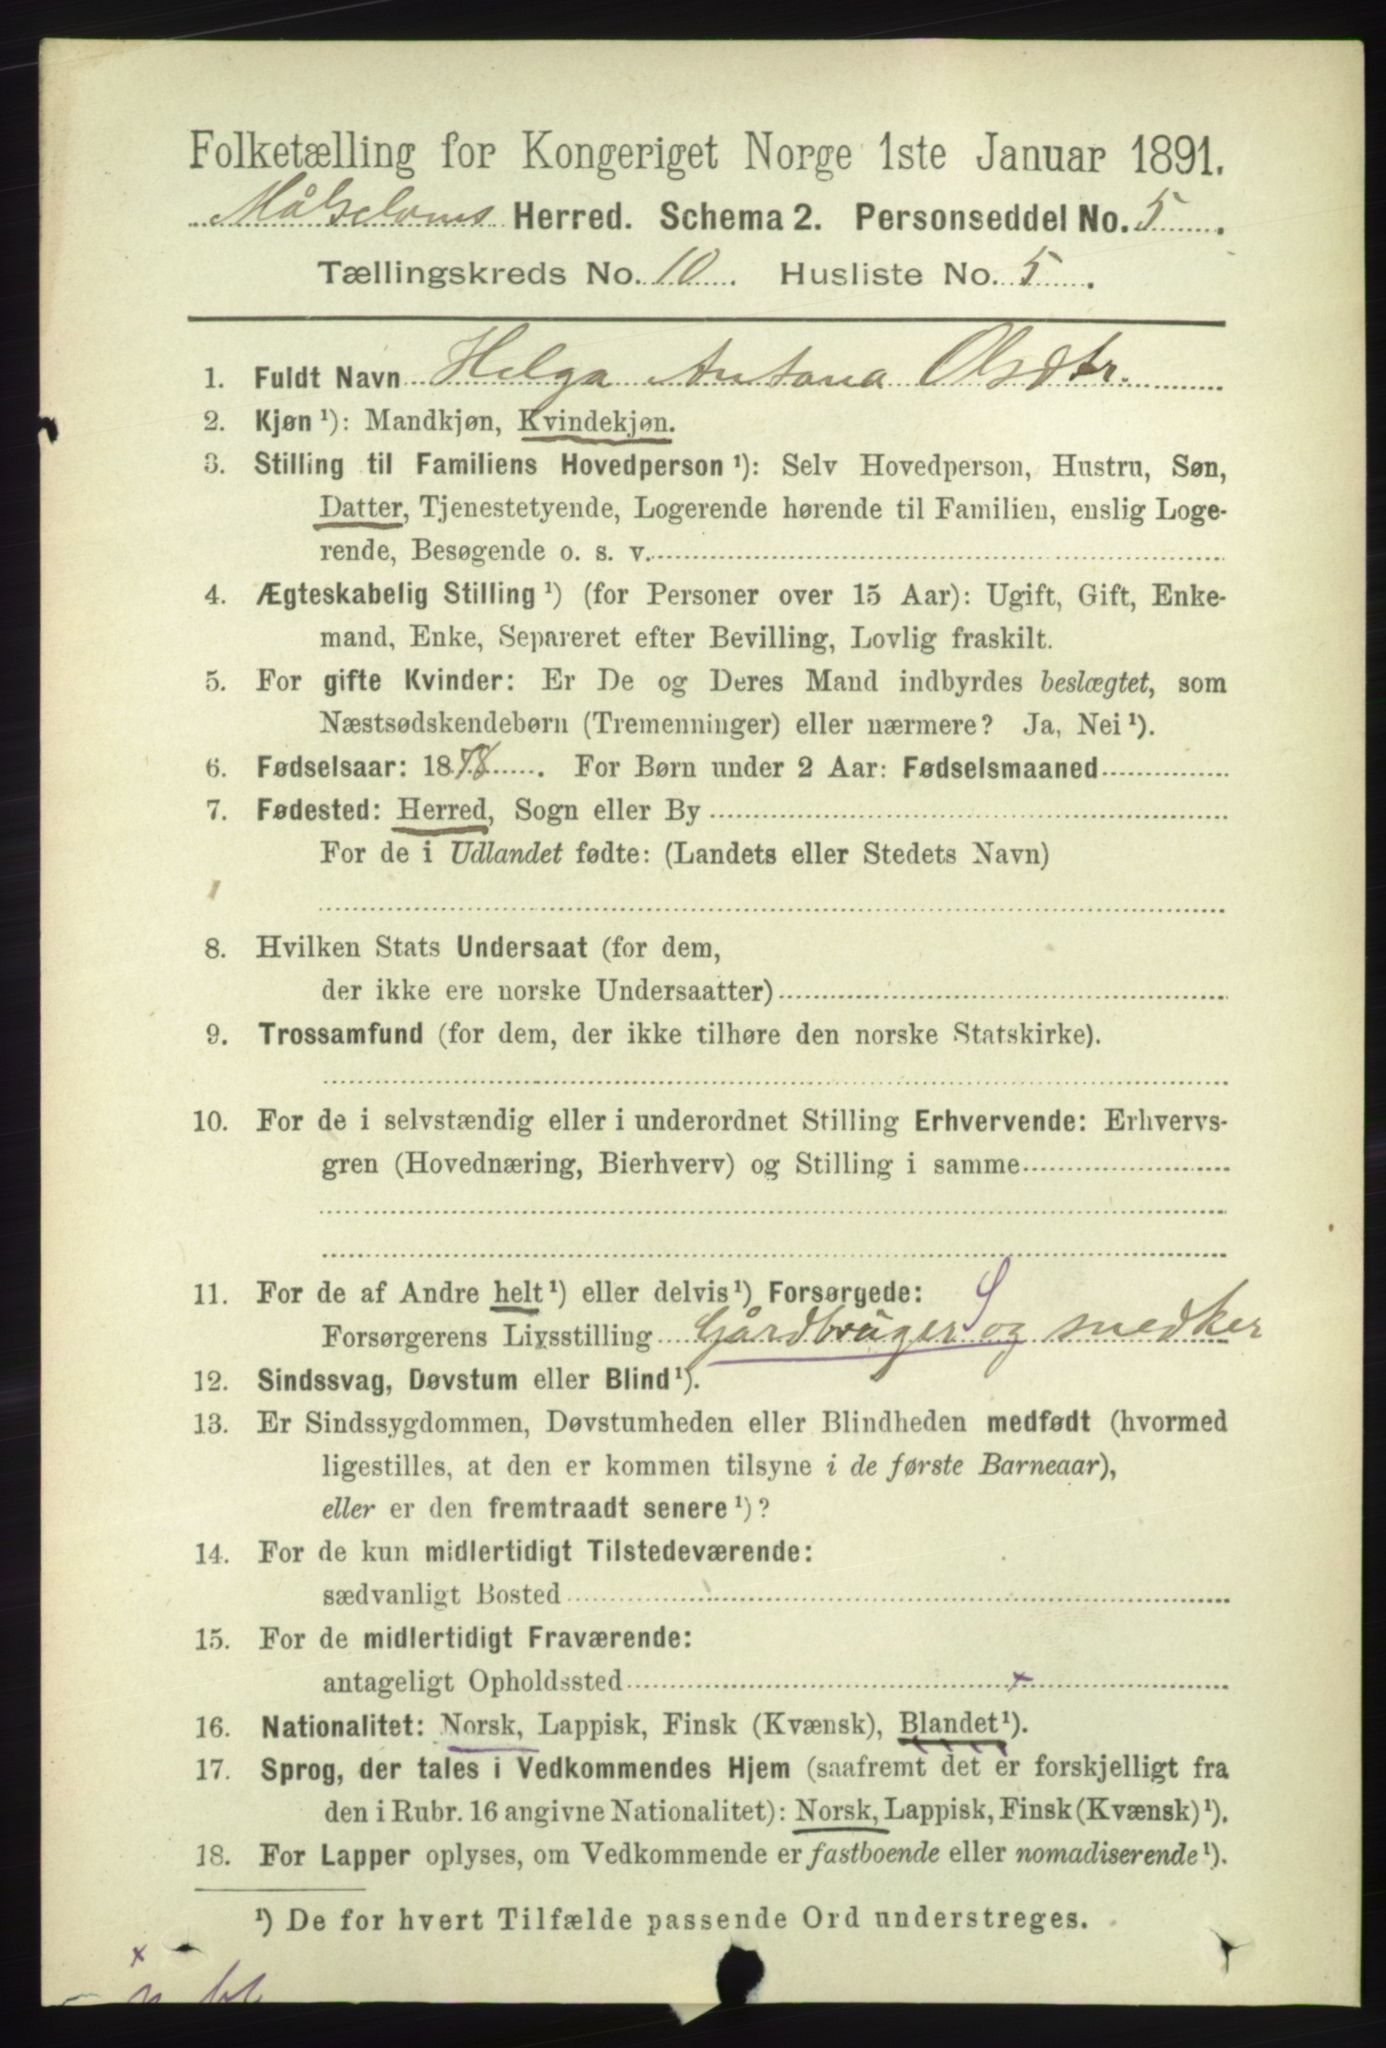 Folketælling for Kongeriget Norge 1ste Januar 1891.
Målselvens Herred. Schema 2. Personseddel No. 5.
Tællingskreds No. 10. Husliste No. 5.
1. Fuldt Navn Helga Antona Olsdtr.
2. Kjøn ¹): Mandkjøn, Kvindekjøn.
3. Stilling til Familiens Hovedperson ¹): Selv Hovedperson, Hustru, Søn,
Datter, Tjenestetyende, Logerende hørende til Familien, enslig Loge-
rende, Besøgende o. s. v.
4. Ægteskabelig Stilling ¹) (for Personer over 15 Aar): Ugift, Gift, Enke-
mand, Enke, Separeret efter Bevilling, Lovlig fraskilt.
5. For gifte Kvinder: Er De og Deres Mand indbyrdes beslægtet, som
Næstsødskendebørn (Tremenninger) eller nærmere? Ja, Nei ¹).
6. Fødselsaar: 1878. For Børn under 2 Aar: Fødselsmaaned
7. Fødested: Herred, Sogn eller By
For de i Udlandet fødte: (Landets eller Stedets Navn)
8. Hvilken Stats Undersaat (for dem,
der ikke ere norske Undersaatter)
9. Trossamfund (for dem, der ikke tilhøre den norske Statskirke).
10. For de i selvstændig eller i underordnet Stilling Erhvervende: Erhvervs-
gren (Hovednæring, Bierhverv) og Stilling i samme
11. For de af Andre helt ¹) eller delvis ¹) Forsørgede: S
Forsørgerens Livsstilling Gårdbrüger og medker
12. Sindssvag, Døvstum eller Blind ¹).
13. Er Sindssygdommen, Døvstumheden eller Blindheden medfødt (hvormed
ligestilles, at den er kommen tilsyne i de første Barneaar),
eller er den fremtraadt senere ¹)?
14. For de kun midlertidigt Tilstedeværende:
sædvanligt Bosted
15. For de midlertidigt Fraværende:
antageligt Opholdssted x
16. Nationalitet: Norsk, Lappisk, Finsk (Kvænsk), Blandet ¹).
17. Sprog, der tales i Vedkommendes Hjem (saafremt det er forskjelligt fra
den i Rubr. 16 angivne Nationalitet): Norsk, Lappisk, Finsk (Kvænsk) ¹).
18. For Lapper oplyses, om Vedkommende er fastboende eller nomadiserende ¹).
¹) De for hvert Tilfælde passende Ord understreges.
x